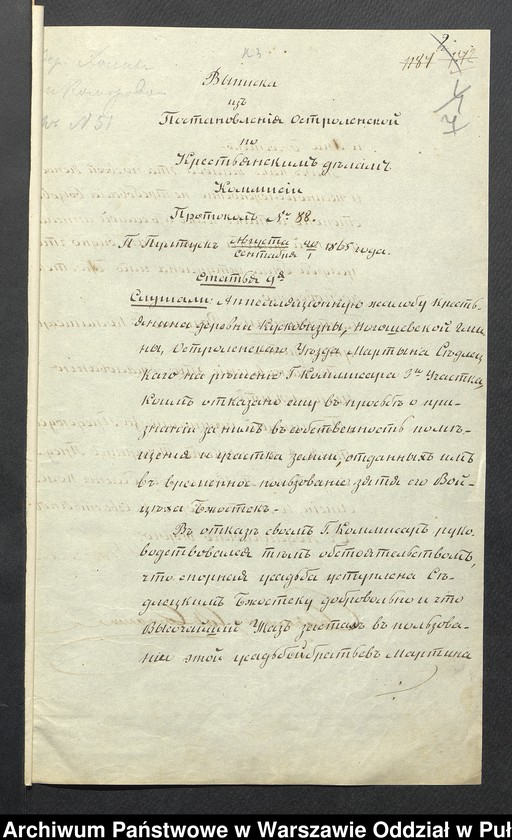 1184
Выписка
изъ
Постановленія Остроленской
по
Крестьянскимъ дѣламъ
Коммисіи
Протоколъ № 88.
П. Пултускъ Августа 20/Сентября 1 1865 года.
Статья 9я
Слушали: Аппеляціонную жалобу кресть-
янина деревни Курковизны, Гоі
ны, Остроленскаго Уѣзда Мартына Сѣдлец
каго на рѣшеніе Г. Коммисара 3го Участка,
коимъ отказано ему въ просьбѣ о при-
знаніи за нимъ въ собственность помѣ-
щенія и участка земли, отданныхъ имъ
въ временное пользованіе зятя его Вой-
цѣха Бжостекъ.
Въ отказѣ своемъ Г. Коммисаръ руко-
водствовался тѣмъ обстоятельствомъ,
что спорная усадьба уступлена Сѣ-
длецкимъ Бжостеку добровольно и что
Высочайшій Указъ засталъ въ пользова-
ніи этой усадьбой братьевъ Мартина
Archiwum Państwowe w Warszawie Oddział w Puł